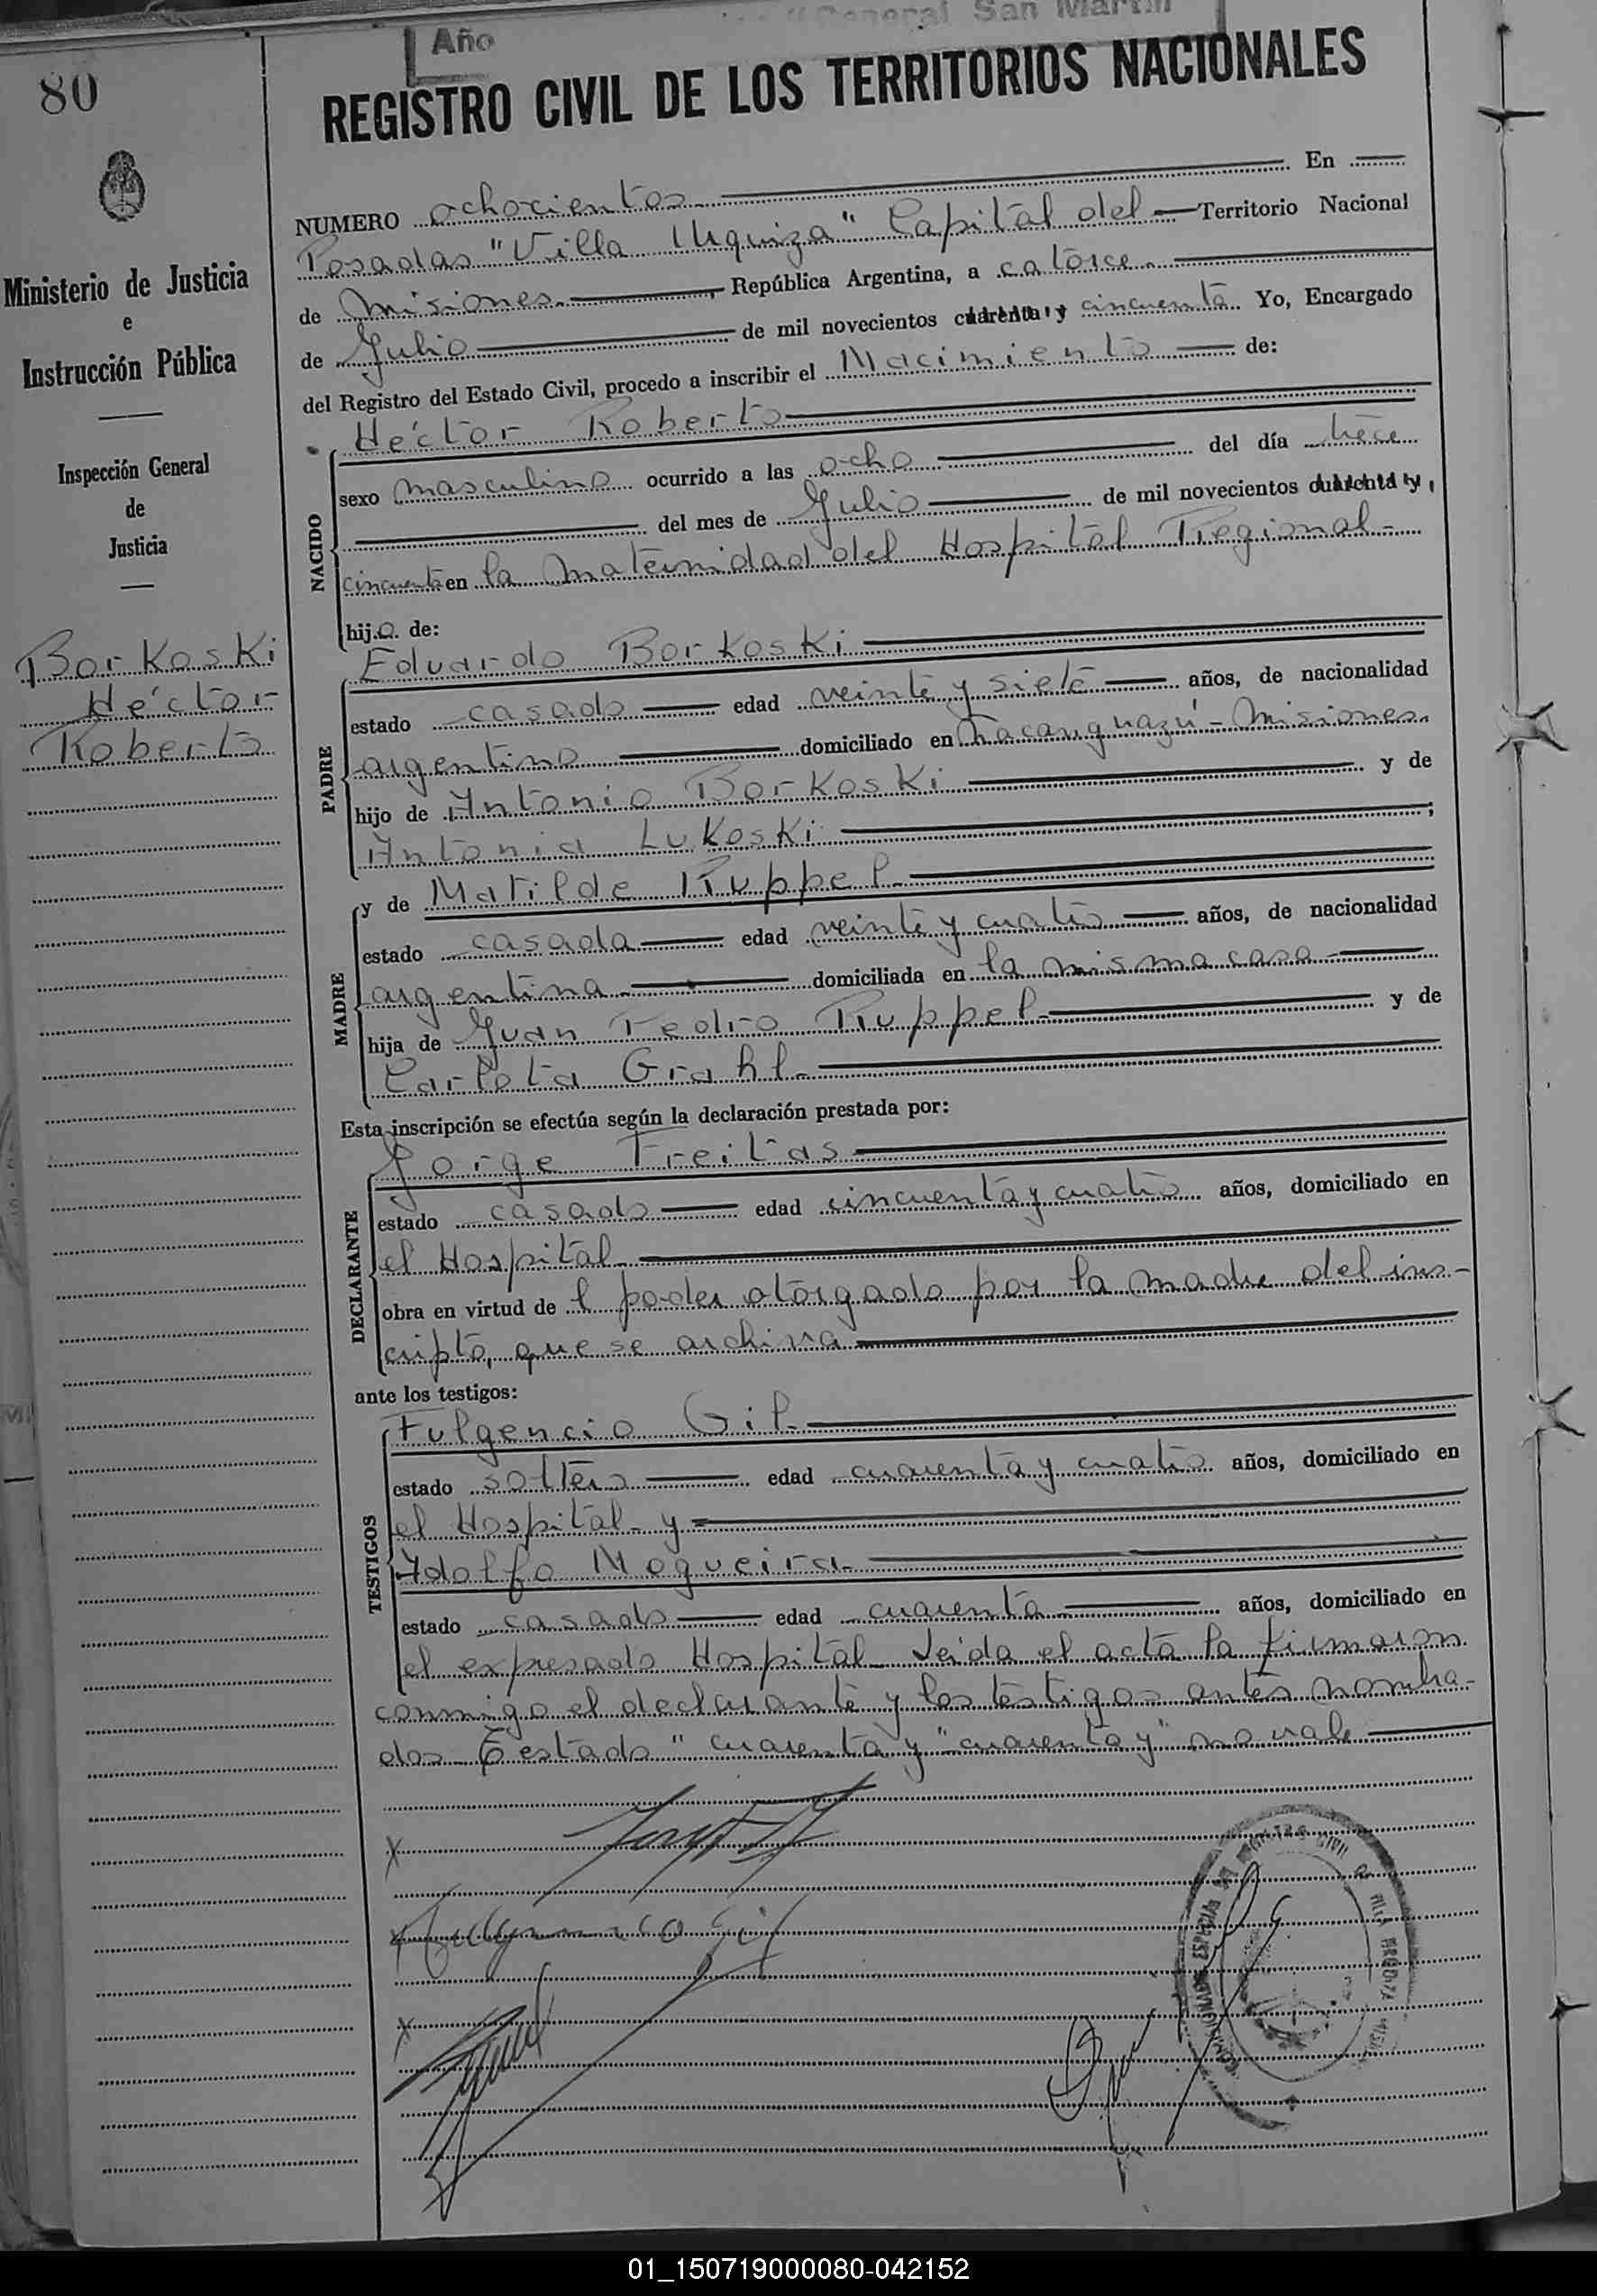 "General San Martín"
Año
80
REGISTRO CIVIL DE LOS TERRITORIOS NACIONALES
Ministerio de Justicia
e
Instrucción Pública
Inspección General
de
Justicia
Borkoski
Héctor
Roberto
NUMERO ochocientos En
Posadas "Villa Urquiza" Capital del Territorio Nacional
de Misiones, República Argentina, a catorce
de Julio de mil novecientos cuarenta y cincuenta. Yo, Encargado
del Registro del Estado Civil, procedo a inscribir el Nacimiento de:
NACIDO
Héctor Roberto
sexo masculino ocurrido a las ocho del día trece
del mes de Julio de mil novecientos cuarenta y
cincuenta en la Maternidad del Hospital Regional
hijo de:
PADRE
Eduardo Borkoski
estado casado edad veinte y siete años, de nacionalidad
argentino domiciliado en Yacanguazú - Misiones.
hijo de Antonio Borkoski y de
Antonia Lukoski ;
MADRE
y de Matilde Ruppel
estado casada edad veinte y cuatro años, de nacionalidad
argentina domiciliada en la misma casa
hija de Juan Pedro Ruppel y de
Carlota Grahl
Esta inscripción se efectúa según la declaración prestada por:
DECLARANTE
Jorge Freitas
estado casado edad cincuenta y cuatro años, domiciliado en
el Hospital
obra en virtud de l poder otorgado por la madre del ins-
cripto, que se archiva
ante los testigos:
TESTIGOS
Fulgencio Gil
estado soltero edad cuarenta y cuatro años, domiciliado en
el Hospital y
Adolfo Nogueira
estado casado edad cuarenta años, domiciliado en
el expresado Hospital. Leída el acta la firmaron
conmigo el declarante y los testigos antes nombra-
dos. Testado "cuarenta y" "cuarenta y" no vale
Fulgencio Gil
01_150719000080-042152